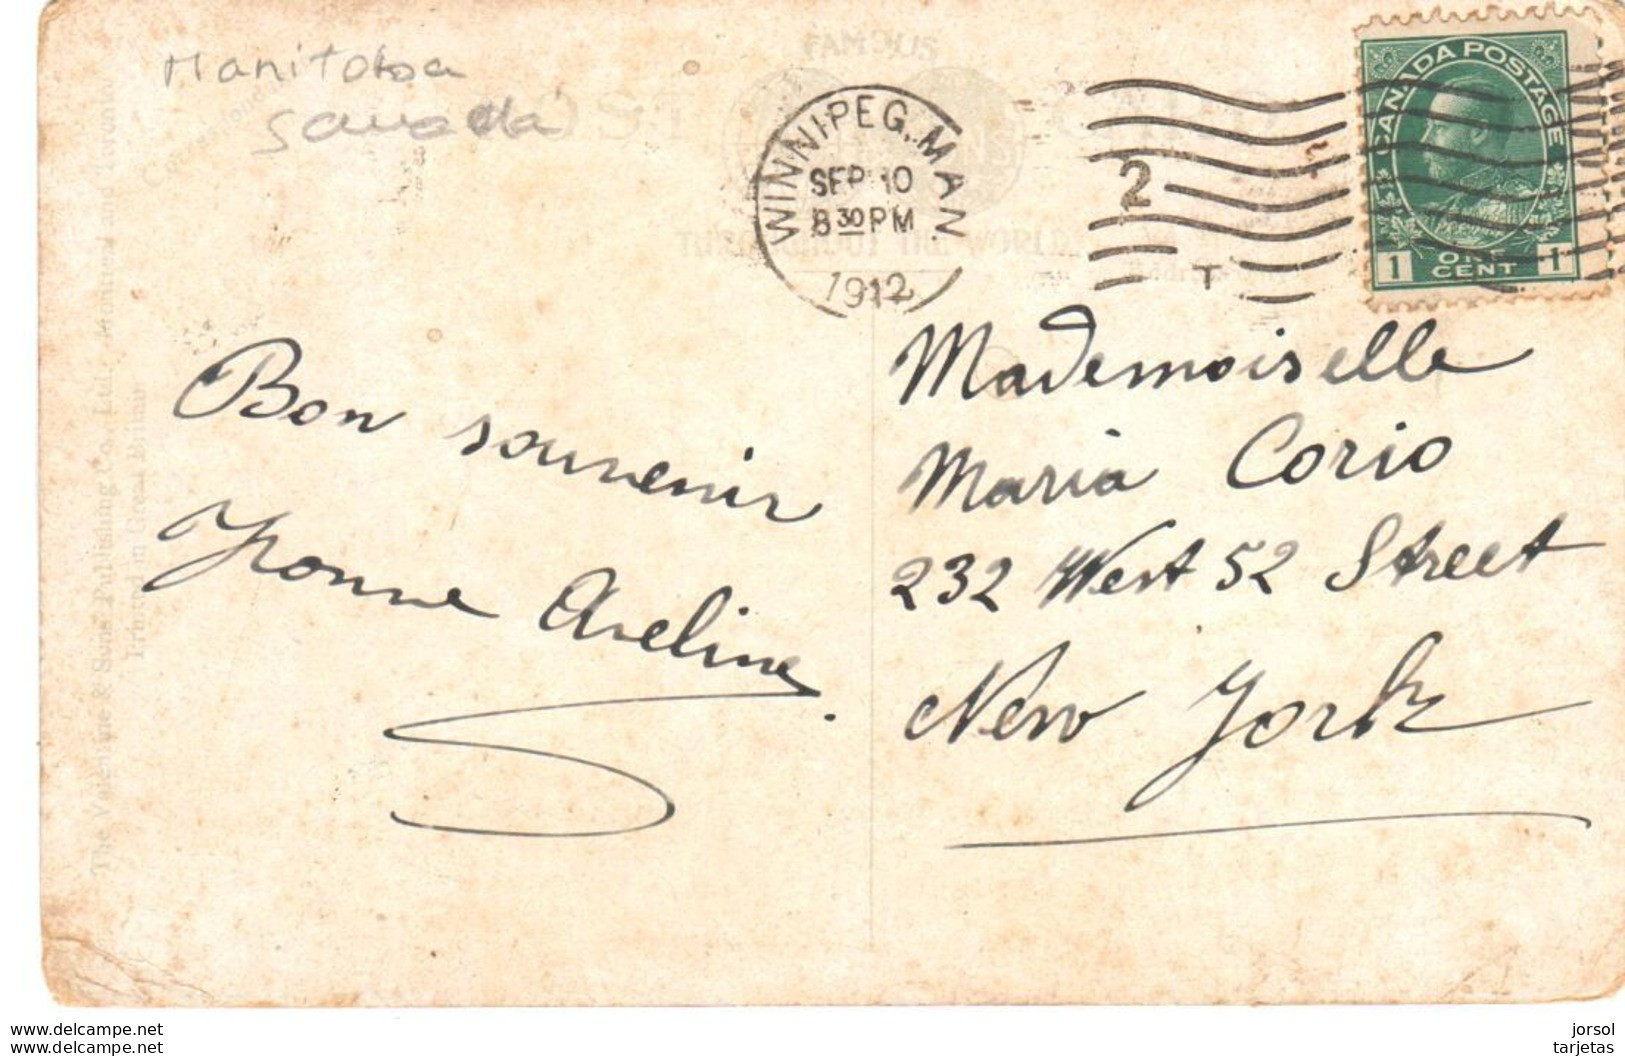 Manitoba
Canadá
FAMOUS
POST CARD
THROUGHOUT THE WORLD
WINNIPEG, MAN.
SEP 10
8 30 PM
1912
2
T
CANADA POSTAGE
1 ONE CENT 1
The Valentine & Sons Publishing Co., Ltd., Montreal and Toronto
Printed in Great Britain
Bon souvenir
Yvonne Aveline.
Mademoiselle
Maria Corio
232 West 52 Street
New York
www.delcampe.net
www.delcampe.net
jorsol
tarjetas